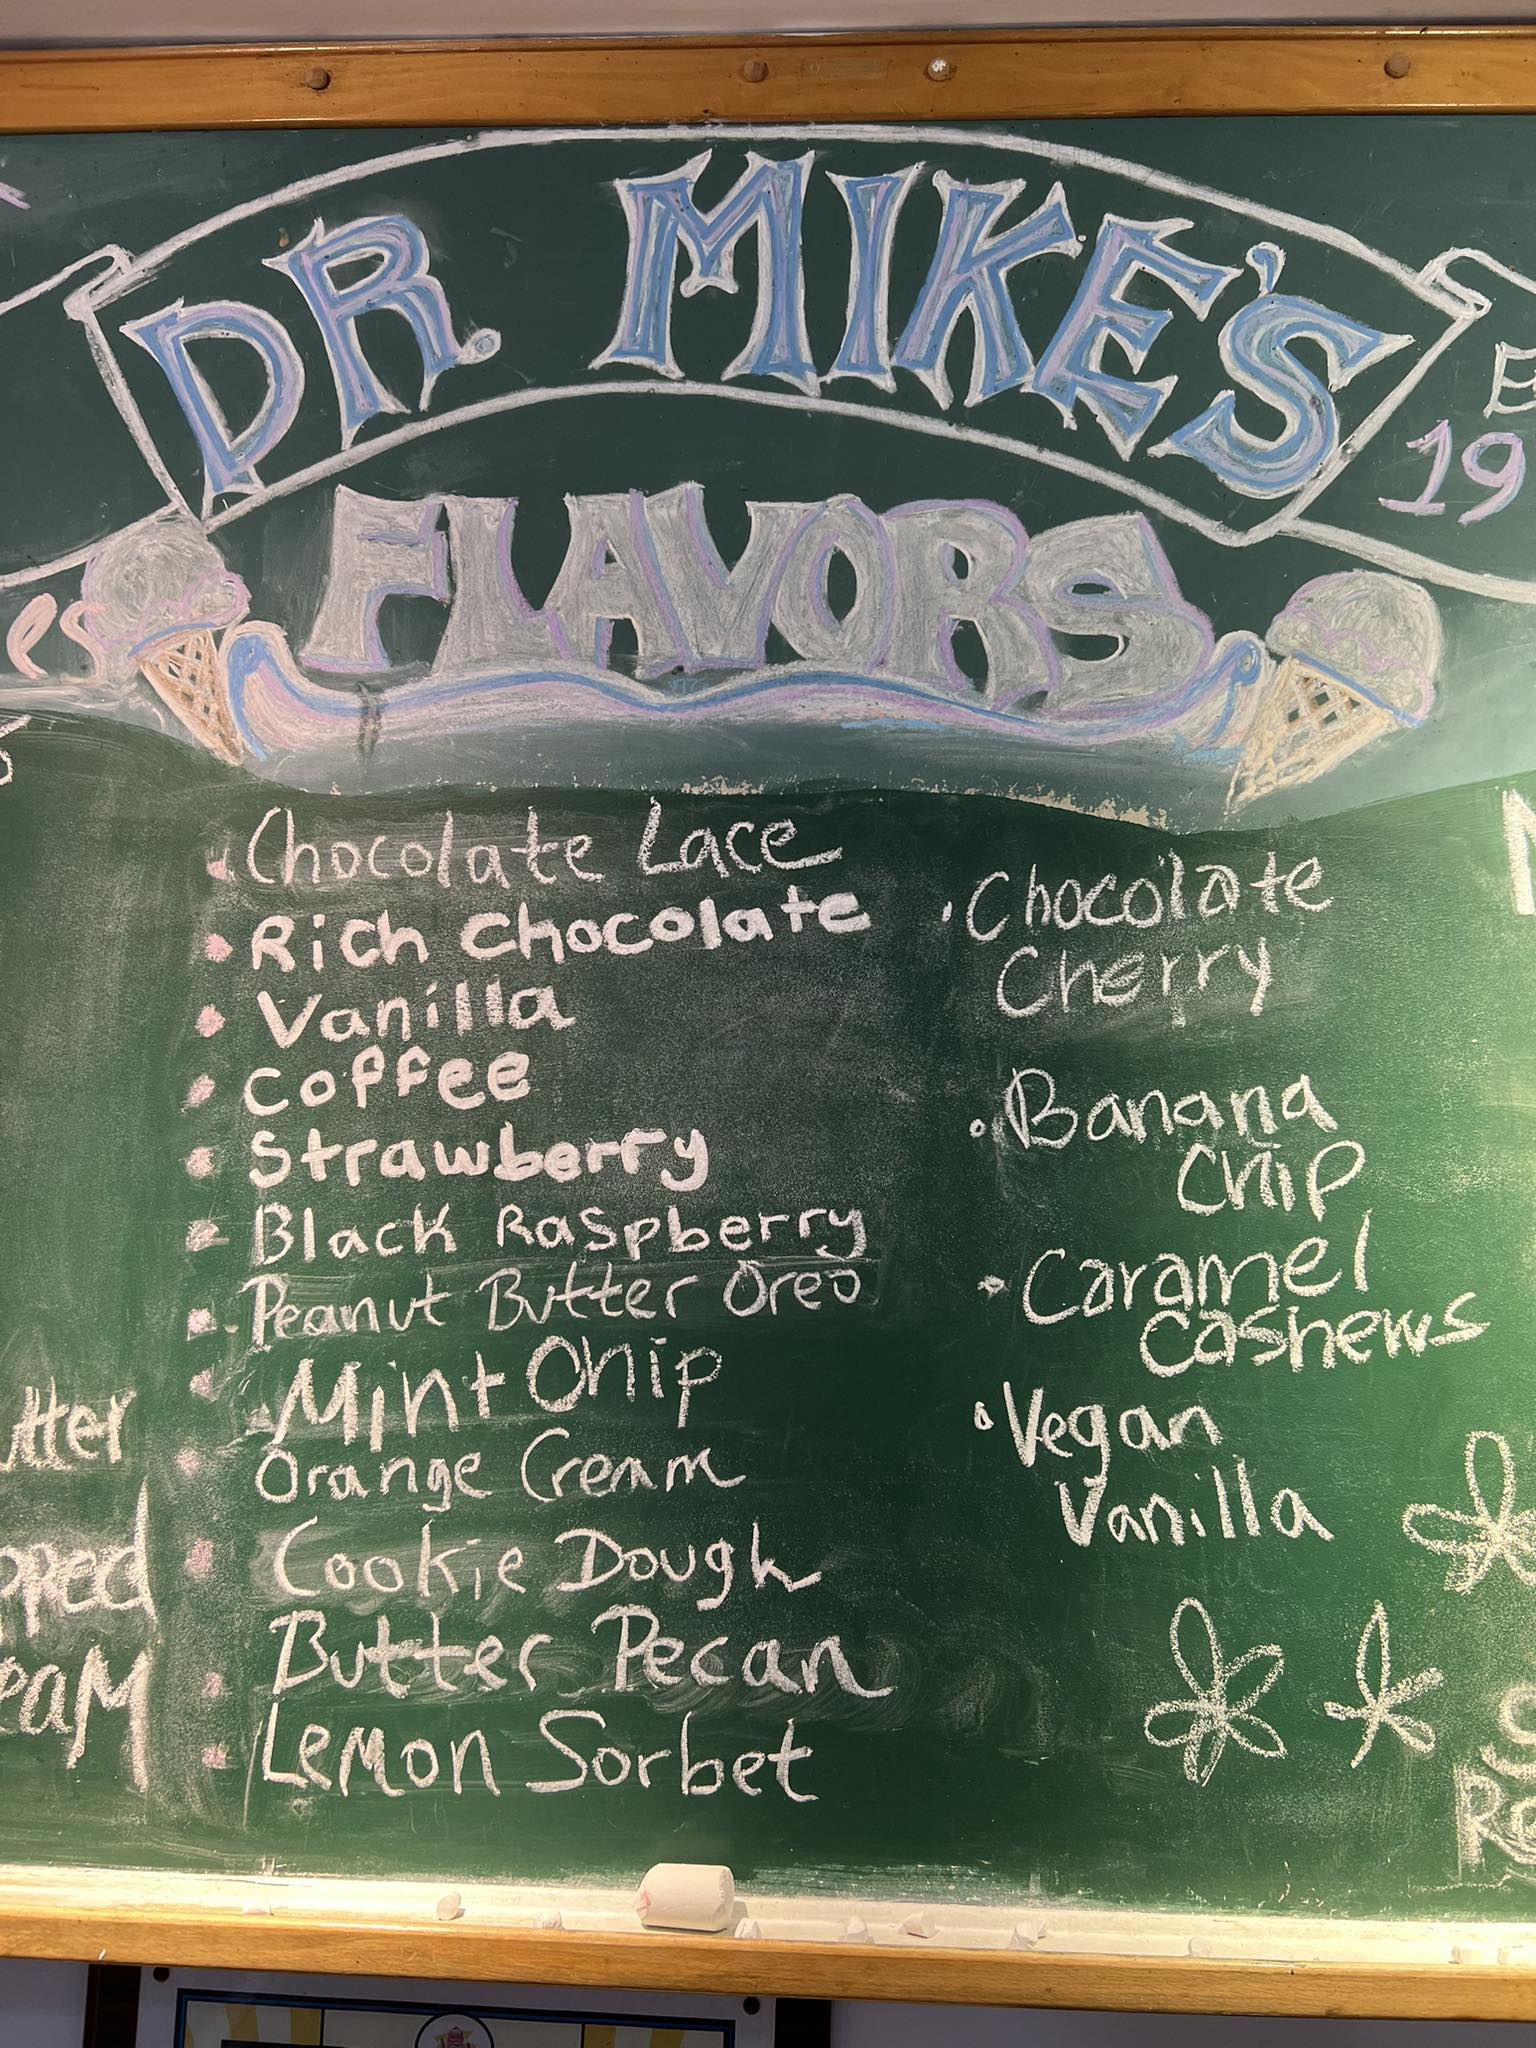 DR. MIKE'S
FLAVORS
E
19
es
Chocolate Lace
Rich Chocolate
Vanilla
Coffee
Strawberry
Black Raspberry
Peanut Butter Oreo
Mint Chip
Orange Cream
Cookie Dough
Butter Pecan
Lemon Sorbet
Chocolate
Cherry
Banana
Chip
Caramel
Cashews
Vegan
Vanilla
utter
pped
eam